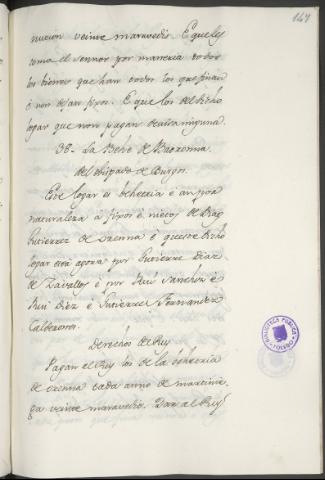 147
nueion veinte maravedis. E que les
toma el sennor por manneria todos
los bienes que han todos los que finan
é non dejan fijos. E que los del dicho
logar que non pagan devisa ninguna.
38. La Behe de Barzenna
del obispado de Burgos.
Este logar es behetria é an por
naturaleza á fijos é nietos de Diag
Gutierrez de Zaenna é que este dicho
logar era agora por Gutierre Diaz
de Zavallos é por Rui Sanchez é
Rui Diez é Gutierre Fernandez
Calderones.
Derechos del Rey
Pagan al Rey los de la behetria
de cada anno de martinie
ga veinte maravedis. Dan al Rey
BIBLIOTECA PUBLICA
TOLEDO